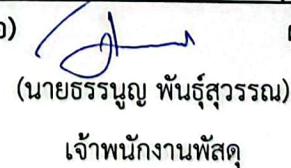 อ)
(นายธรรนูญ พันธุ์สุวรรณ)
เจ้าพนักงานพัสดุ